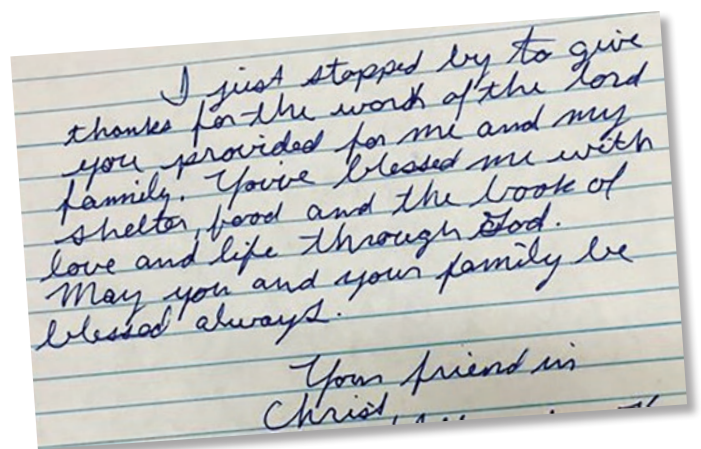 I just stopped by to give
thanks for the word of the lord
you provided for me and my
family. You've blessed me with
shelter, food and the book of
love and life through God.
May you and your family be
blessed always.
Your friend in
Christ